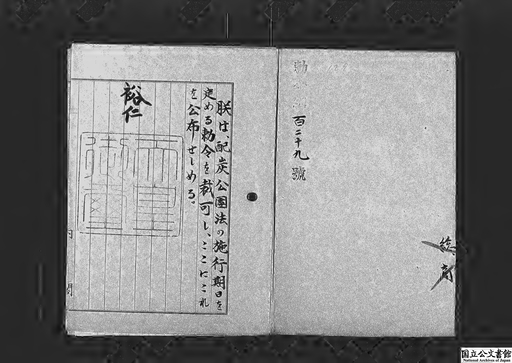 勅
百二十九號
朕は、配炭公團法の施行期日を
定める勅令を裁可し、ここにこれ
を公布せしめる。
裕仁
国立公文書館
National Archives of Japan